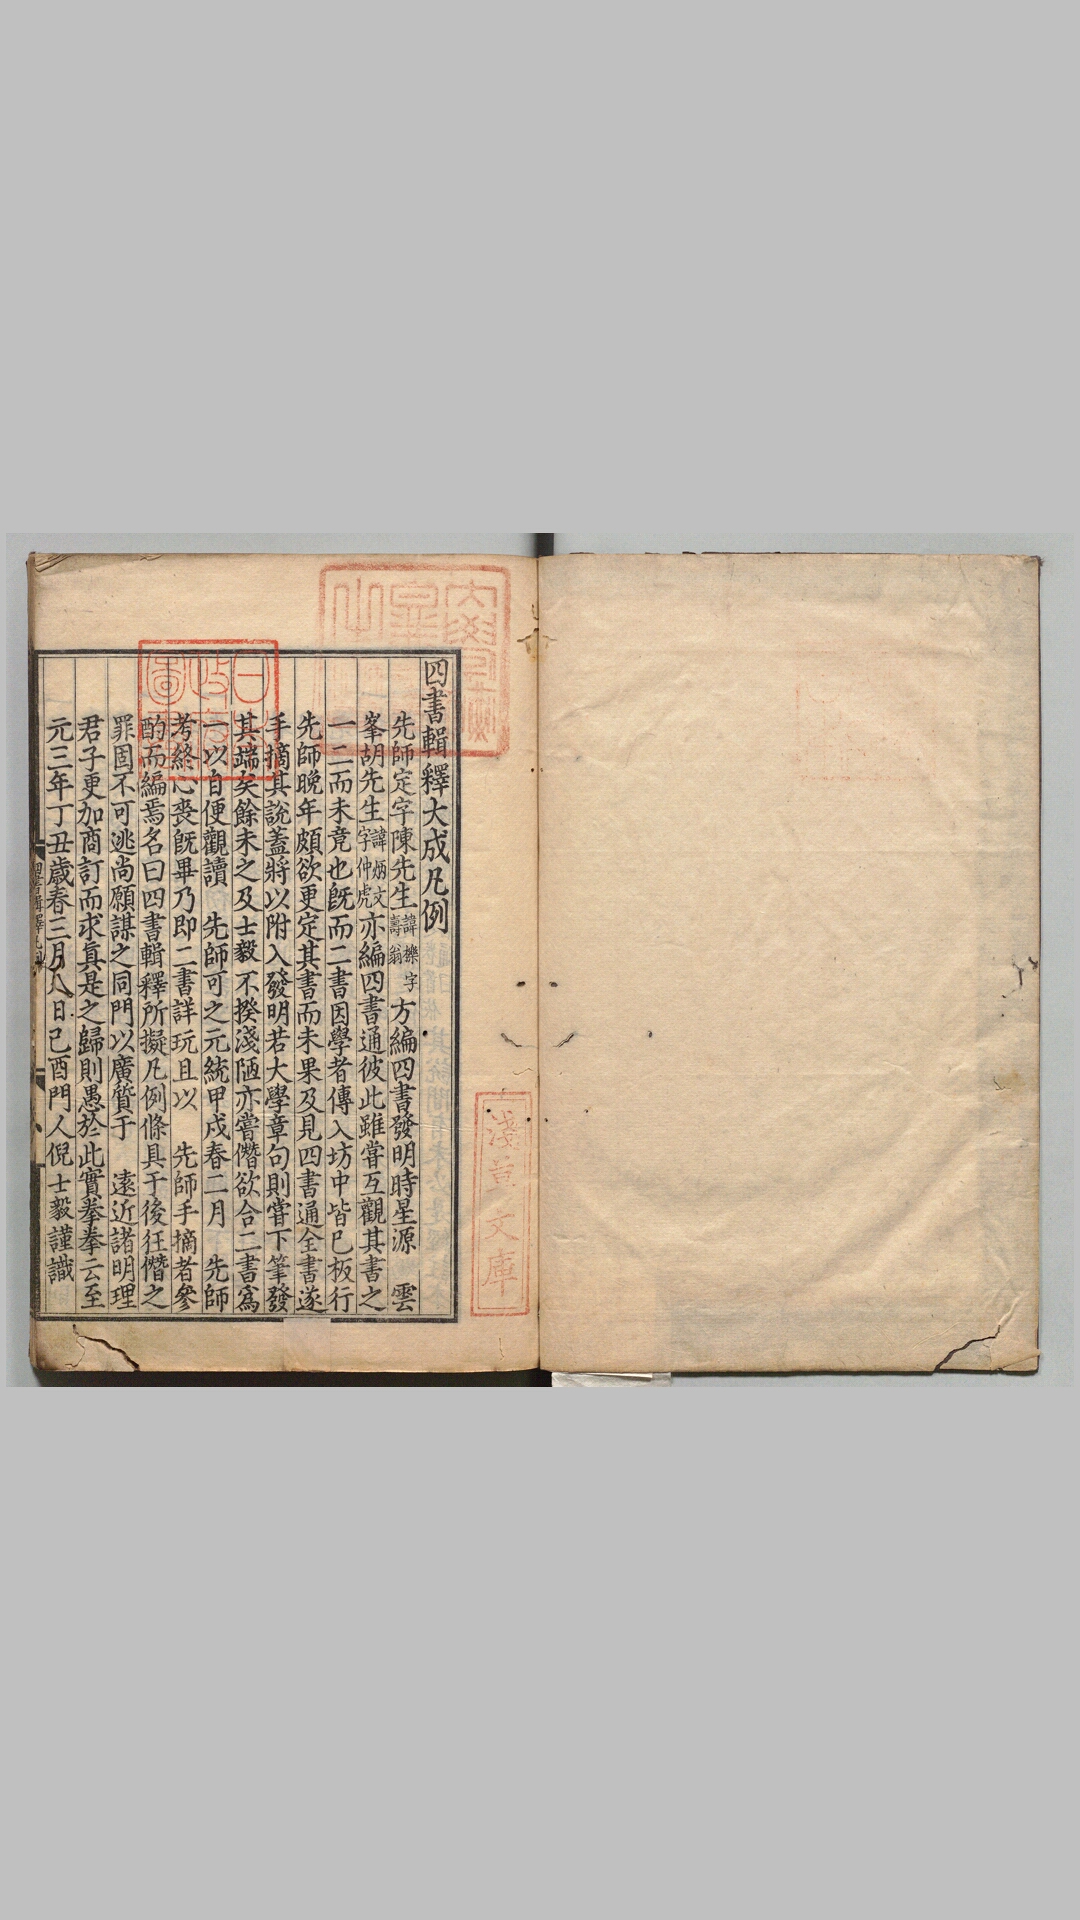 四書輯釋大成凡例
先師定宇陳先生諱櫟字壽翁方編四書發明時星源　雲
峯胡先生諱炳文字仲虎亦編四書通彼此雖嘗互觀其書之
一二而未竟也旣而二書因學者傳入坊中皆已板行
先師晚年頗欲更定其書而未果及見四書通全書遂
手摘其說蓋將以附入發明若大學章句則嘗下筆發
其端矣餘未之及士毅不揆淺陋亦嘗僭欲合二書爲
一以自便觀讀　先師可之元統甲戌春二月　先師
考終心喪旣畢乃即二書詳玩且以　先師手摘者參
酌而編焉名曰四書輯釋所擬凡例條具于後狂僭之
罪固不可逃尚願謀之同門以廣質于　遠近諸明理
君子更加商訂而求眞是之歸則愚於此實拳拳云至
元三年丁丑歲春三月八日己酉門人倪士毅謹識
淺草文庫